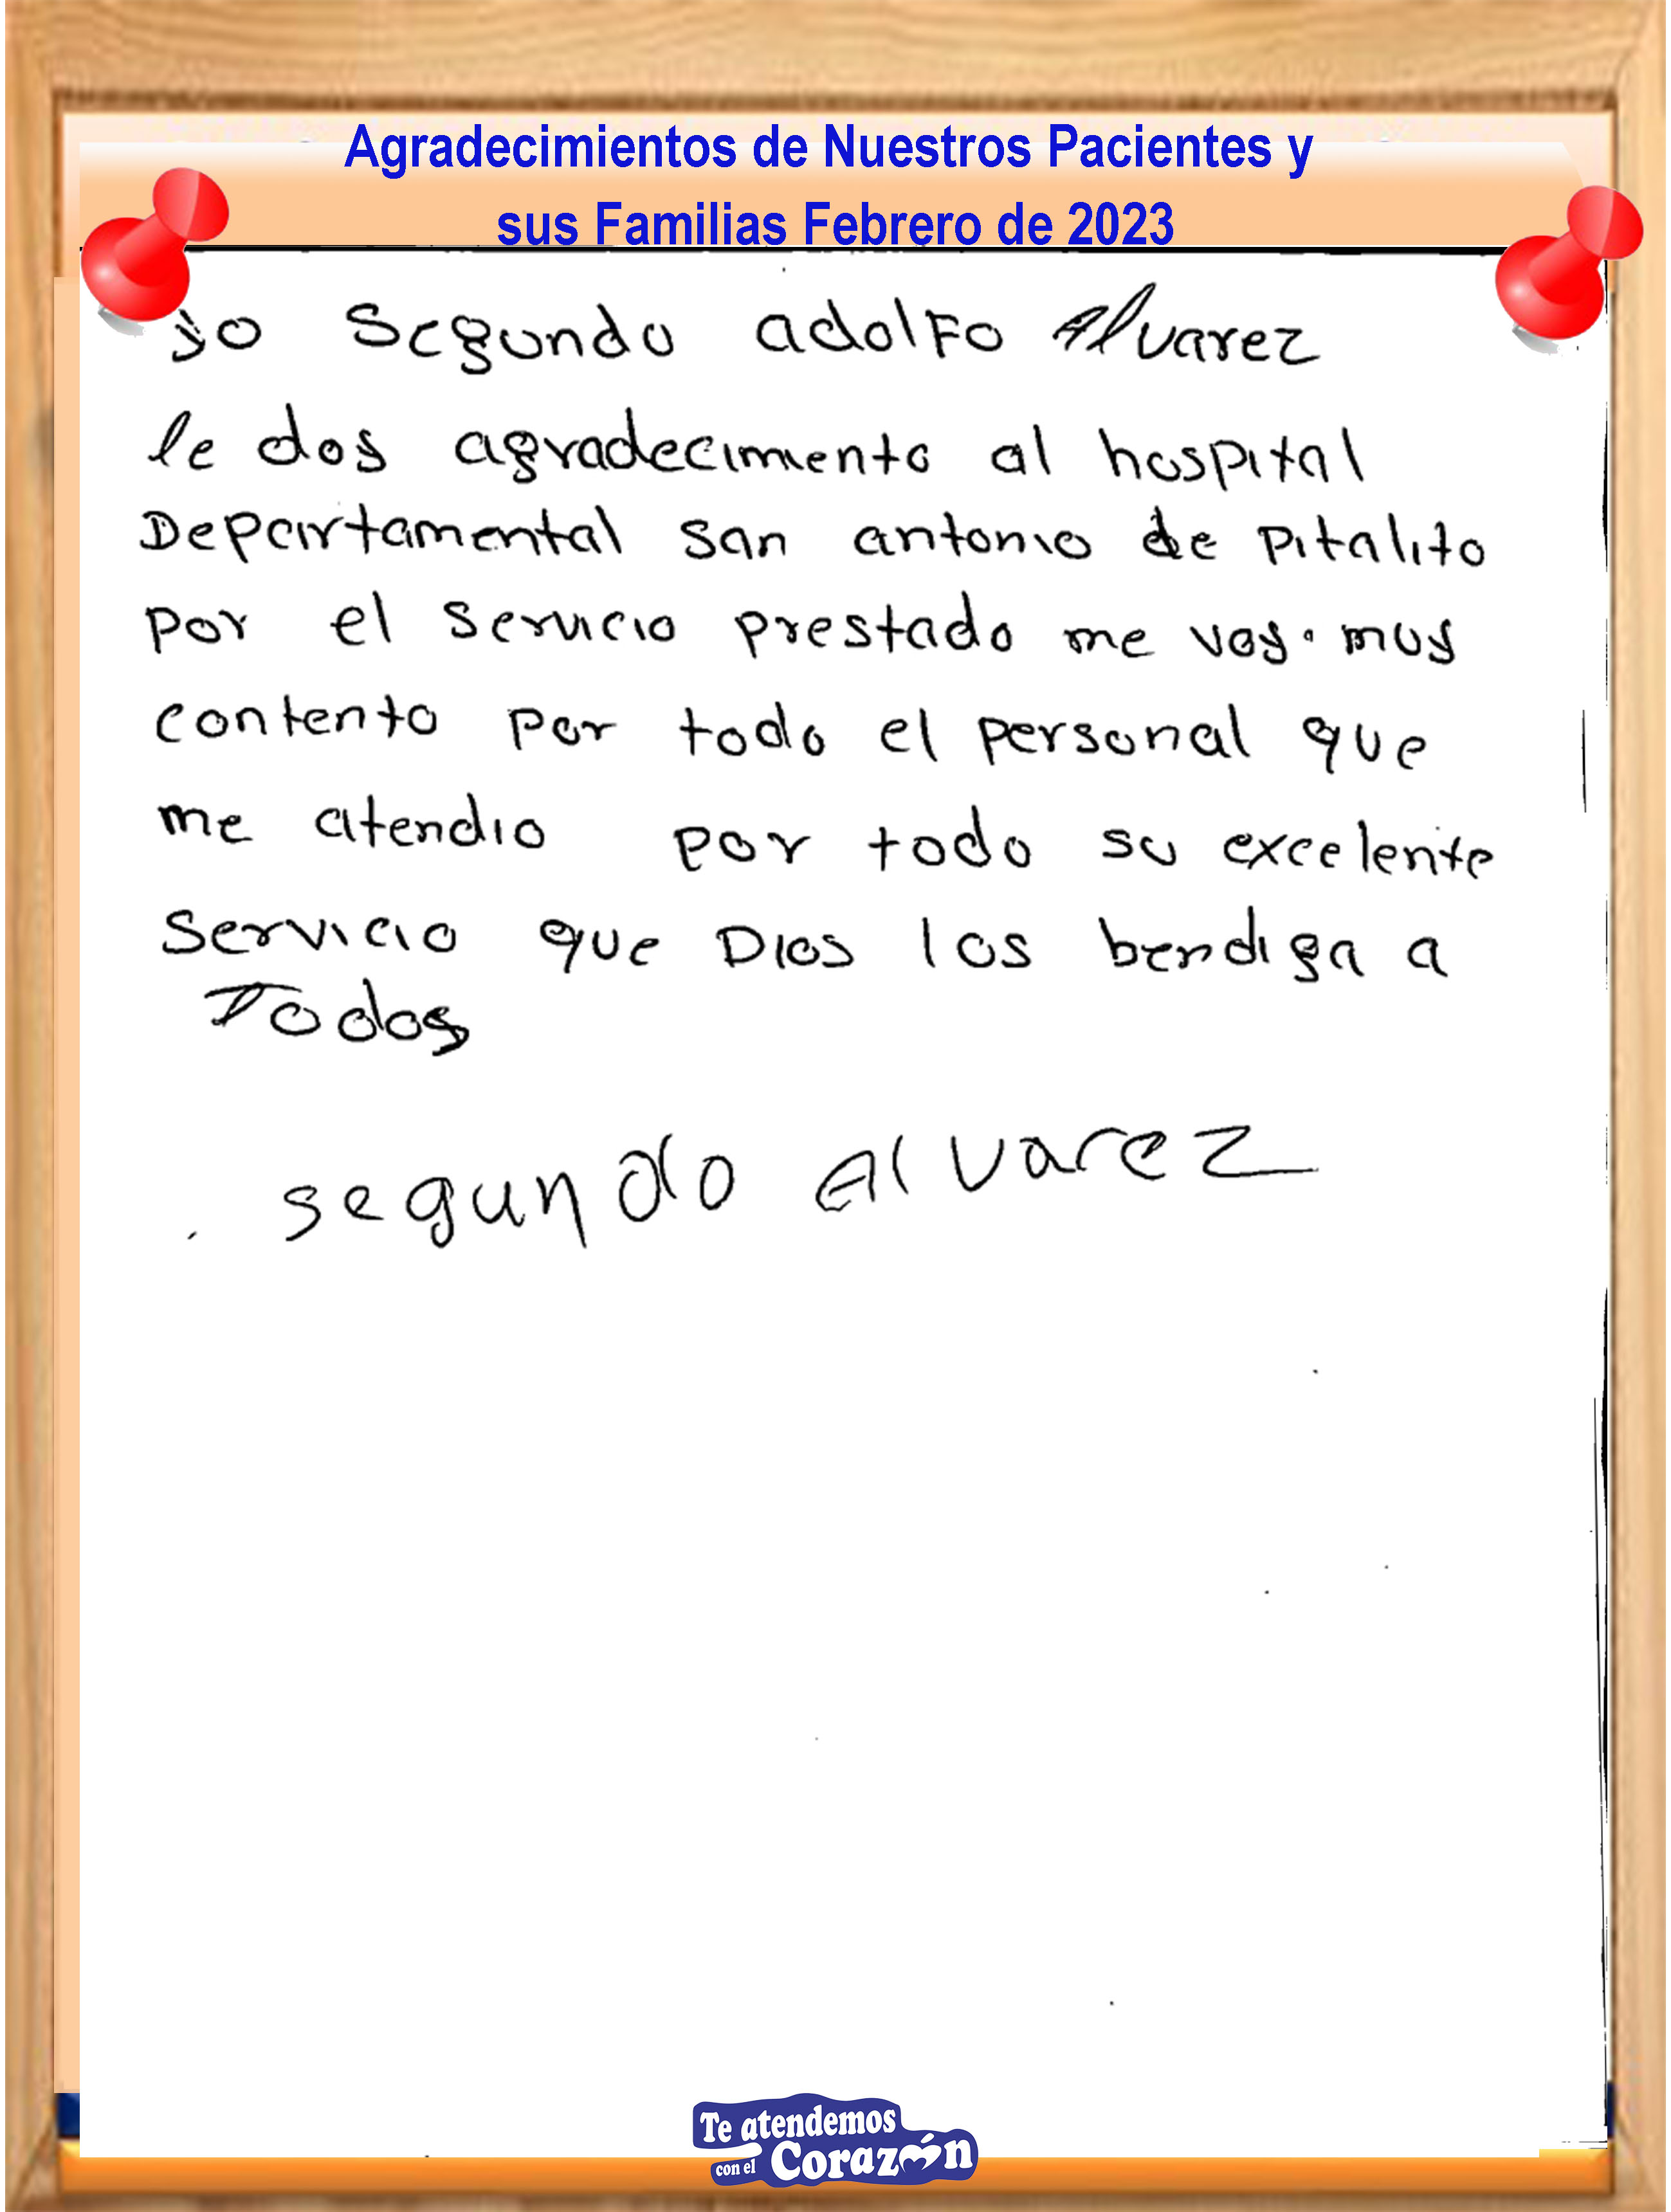 Agradecimientos de Nuestros Pacientes y
sus Familias Febrero de 2023
yo Segundo adolfo Alvarez
le doy agradecimiento al hospital
Departamental san antonio de pitalito
por el servicio prestado me voy. muy
contento por todo el personal que
me atendio por todo su excelente
servicio que Dios los bendiga a
Todos
segundo Alvarez
Te atendemos
con el Corazón